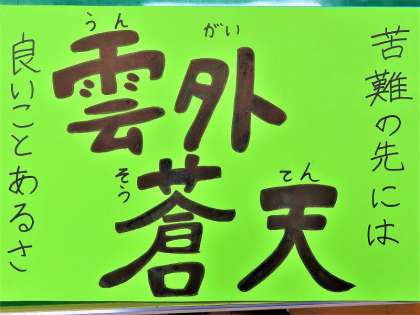 苦難の先には
うん がい
雲外
そう てん
蒼天
良いことあるさ